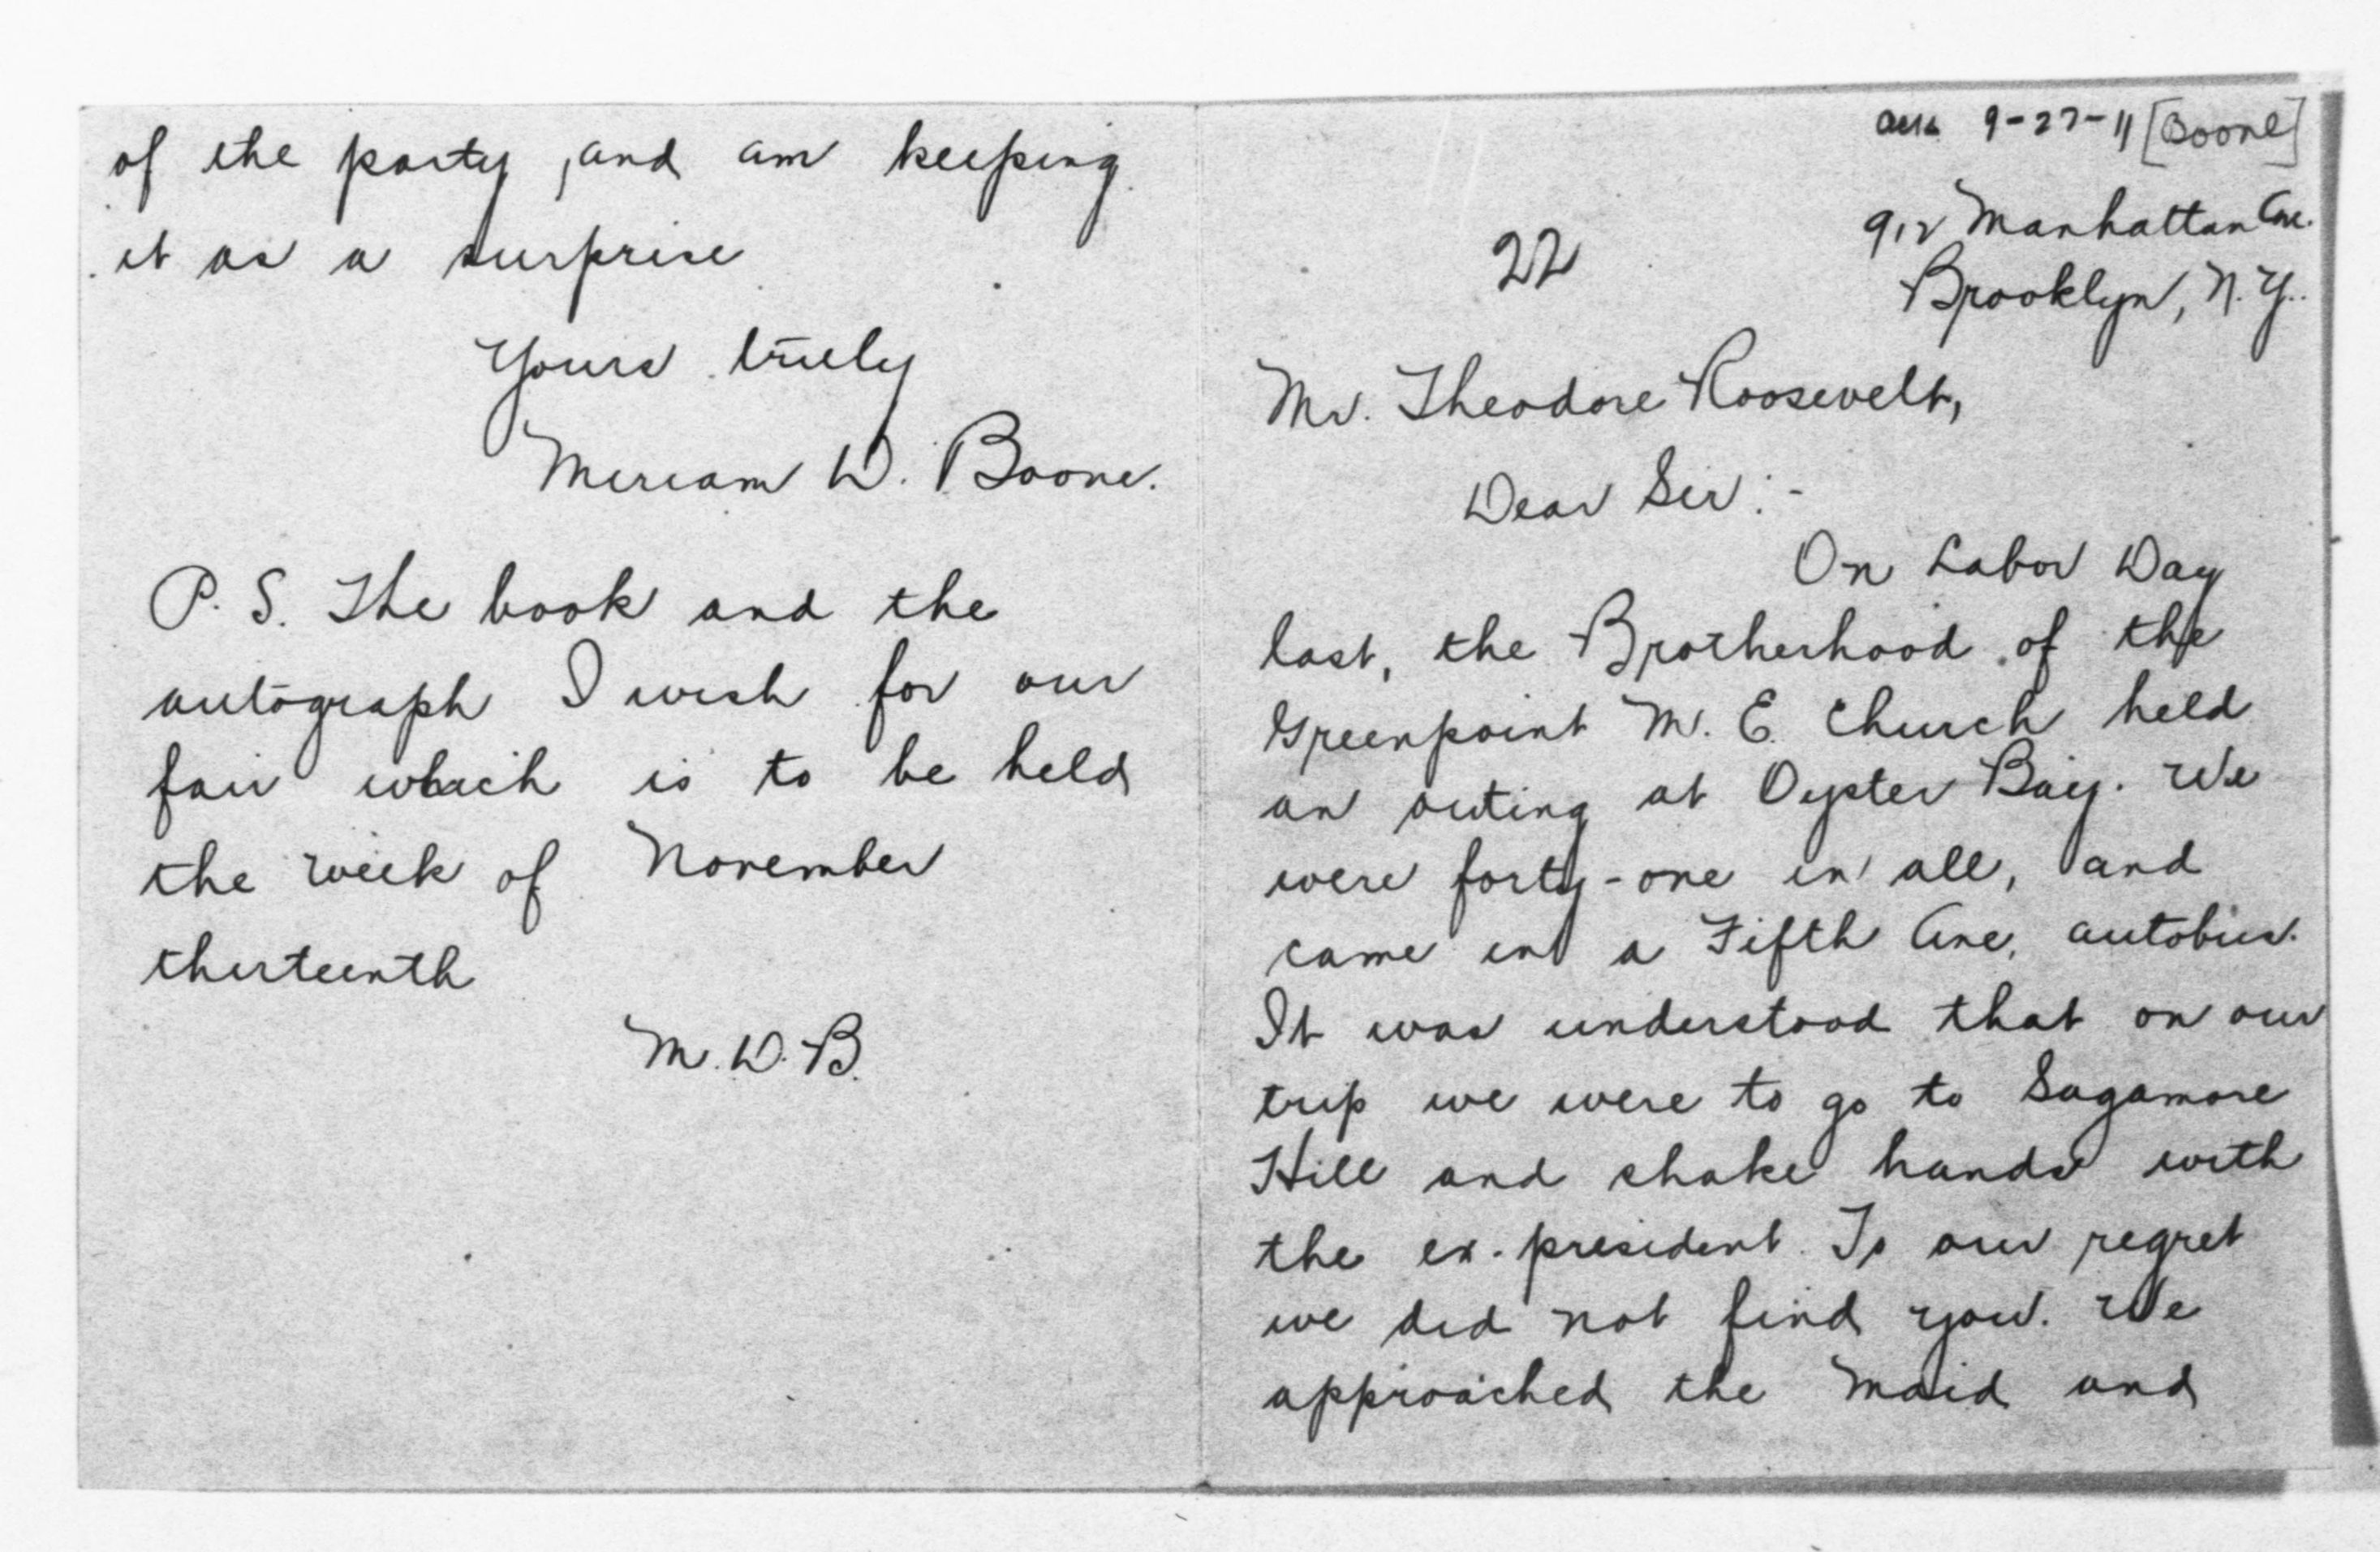 of the party, and am keeping
it as a surprise
Yours truly
Miriam W. Boone.
P. S. The book and the
autograph I wish for our
fair which is to be held
the week of November
thirteenth
M. W. B.
9-27-11 [Boone]
912 Manhattan Ave.
Brooklyn, N. Y.
22
Mr. Theodore Roosevelt,
Dear Sir:-
On Labor Day
last, the Brotherhood of the
Greenpoint M. E. Church held
an outing at Oyster Bay. We
were forty-one in all, and
came in a Fifth Ave. autobus.
It was understood that on our
trip we were to go to Sagamore
Hill and shake hands with
the ex-president. To our regret
we did not find you. We
approached the maid and